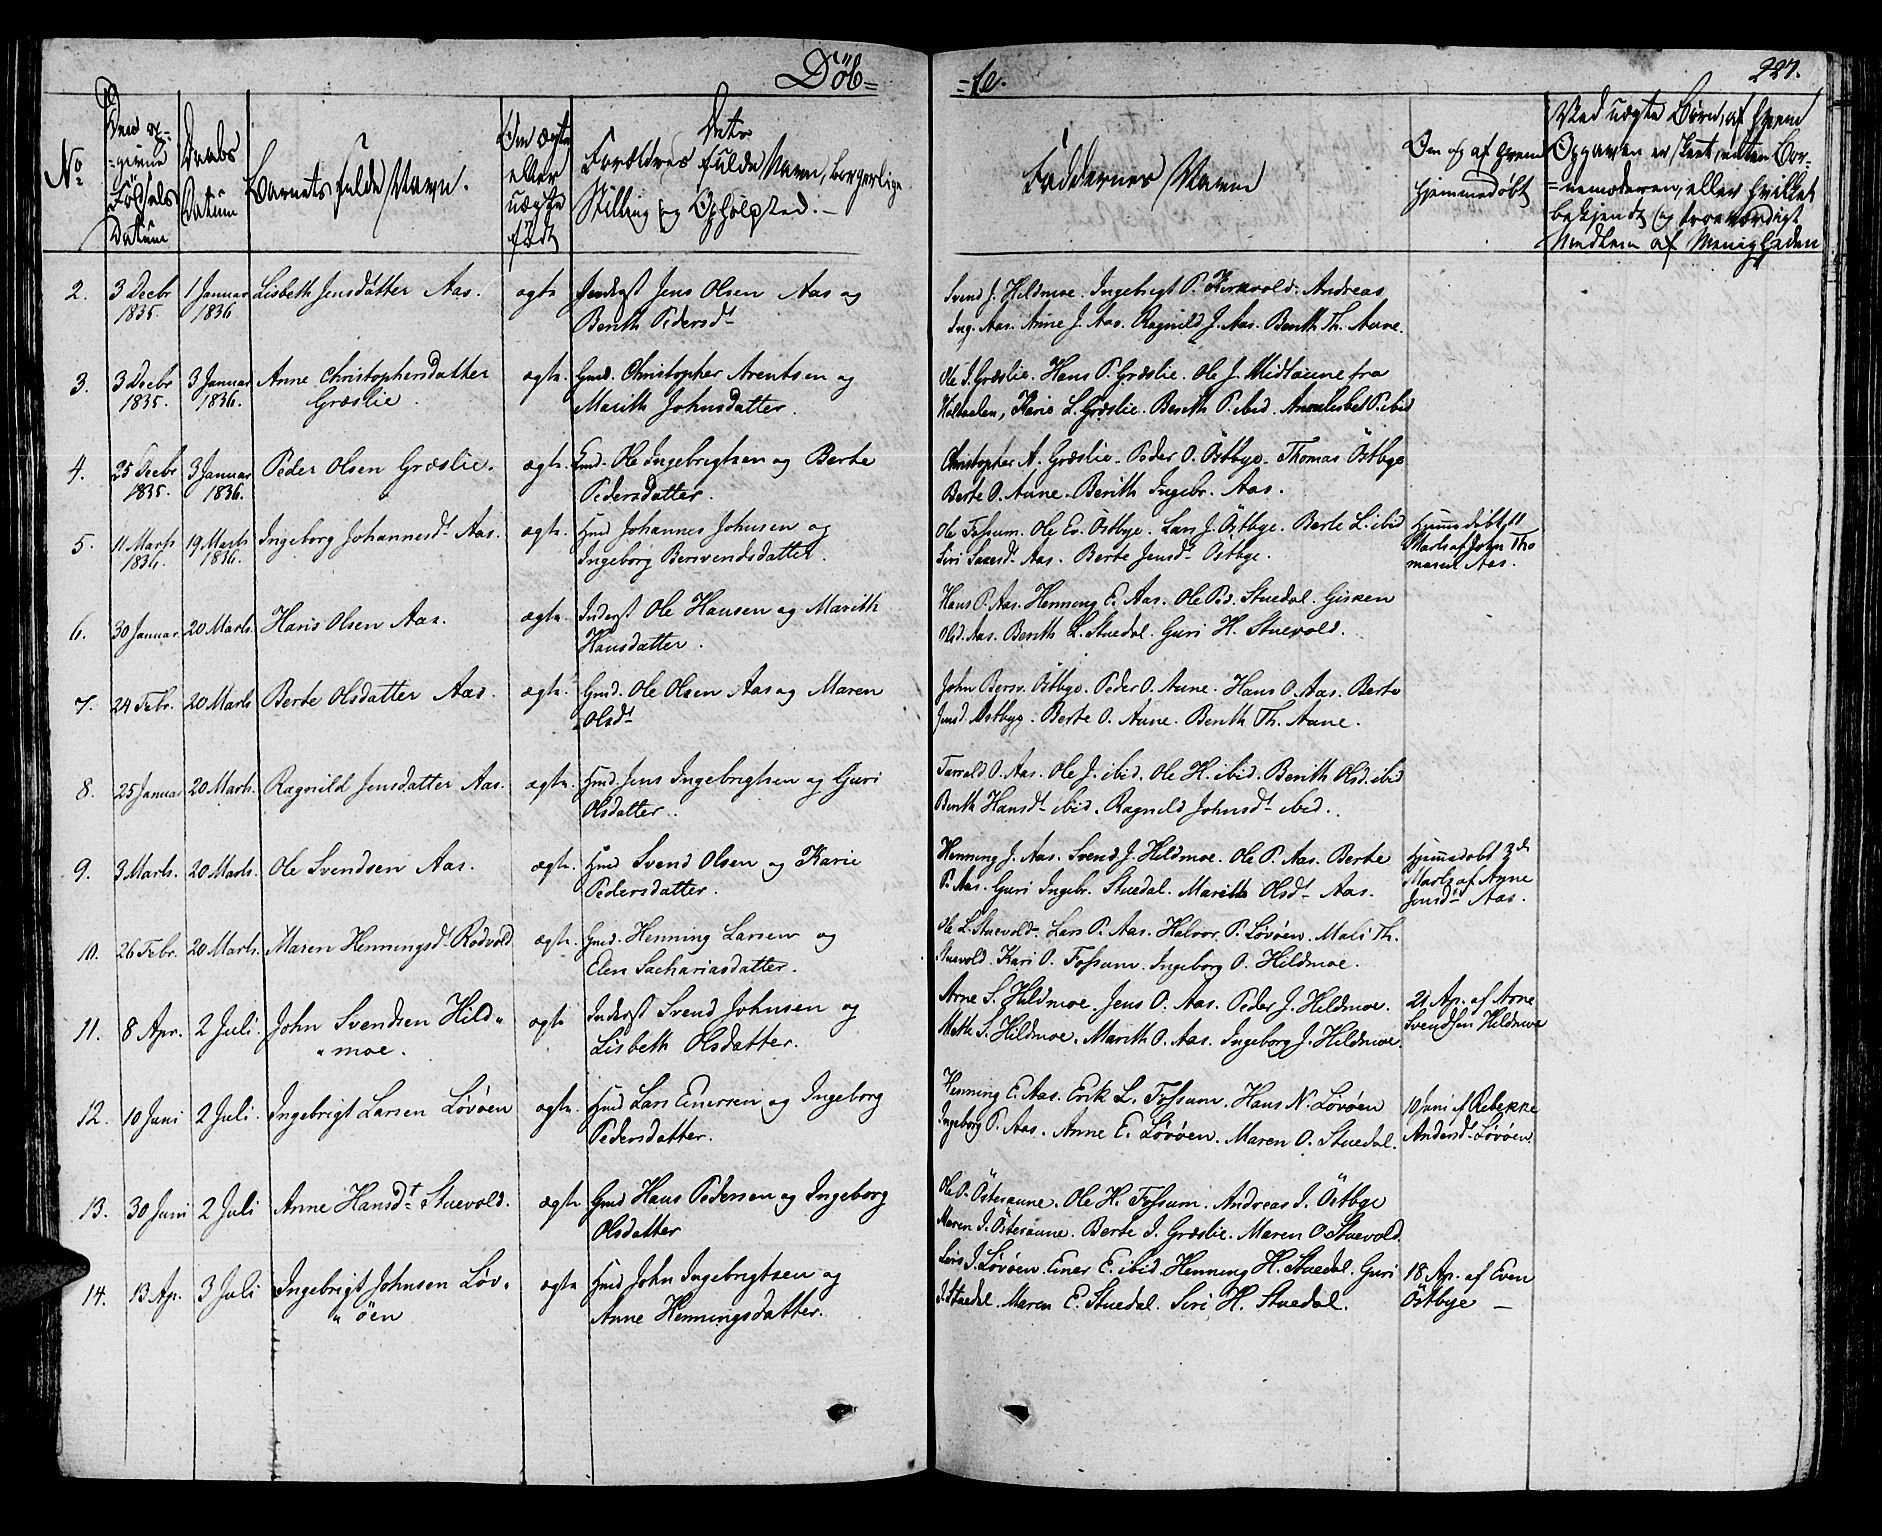 Döb=
=te.
227.
No
Den op=
=givne
Födsels
Datum
Daabs
Datum
Barnets fulde Navn.
Om ægte
eller
uægte
födt
Dets
Forældres fulde Navn, borgerlige
Stilling og Opholpsted.
Faddernes Navne
Om og af hvem
hjemmedöbt
Ved uægte Börn, af hvem
Opgaven er skeet, enten Bar=
=nemoderen, eller hvilket
bekjendt og troeværdigt
Medlem af Menigheden
2. 3 Decbr 1 Januar Lisbeth Jensdatter Aas. ægte Inderst Jens Olsen Aas og
1835. 1836 Berith Pedersdt
Svend J. Hildmoe. Ingebrigt P. Kirkvold. Andreas
Ing. Aas. Anne J. Aas. Ragnild J. Aas. Berith Th. Aune.
3. 3 Decbr 3 Januar Anne Christophersdatter ægte. Gmd. Christopher Arentsen og
1835. 1836. Græslie. Marith Johnsdatter.
Ole J. Græslie. Hans P. Græslie. Ole J. Midtaune fra
Holtaalen, Karie L. Græslie. Berith P. ibid. Annelisbet P. ibid
4. 25 Decbr 3 Januar Peder Olsen Græslie. ægte. Gmd. Ole Ingebrigtsen og Berte
1835. 1836. Pedersdatter.
Christopher A. Græslie. Peder O. Östbye. Thomas Östbye
Berte O. Aune. Berith Ingebr. Aas.
5. 11 Marts 19 Marts Ingeborg Johannesdt Aas. ægte. Hmd Johannes Johnsen og
1836. 1836. Ingeborg Bersvendsdatter.
Ole Fossum. Ole Ev. Östbye. Lars J. Östbye. Berte L. ibid
Siri Larsdt Aas. Berte Jensdt Östbye.
Hjemmedöbt 11
Marts af John Tho
masen Aas.
6. 30 Januar. 20 Marts. Hans Olsen Aas. ægte. Inderst Ole Hansen og Marith
Hansdatter.
Hans P. Aas. Henning E. Aas. Ole Ped. Stuedal. Gisken
Olsd. Aas. Berith L. Stuedal. Guri H. Stuevold.
7. 24 Febr. 20 Marts Berte Olsdatter Aas. ægte. Gmd. Ole Olsen Aas og Maren
Olsdt
John Bersv. Östbye. Peder O. Aune. Hans O. Aas. Berte
Jensd. Östbye. Berte O. Aune. Berith Th. Aune.
8. 25 Januar 20 Marts. Ragnild Jensdatter Aas. ægte. Hmd. Jens Ingebrigtsen og Guri
Olsdatter.
Tarrald O. Aas. Ole J. ibid. Ole H. ibid. Berith Olsd. ibid
Berith Hansdt ibid. Ragnild Johnsdt ibid.
9. 3 Marts. 20 Marts. Ole Svendsen Aas. ægte. Hmd Svend Olsen og Karie
Pedersdatter.
Henning J. Aas. Svend J. Hildmoe. Ole P. Aas. Berte
P. Aas. Guri Ingebr. Stuedal. Marith Olsdt Aas.
Hjemmedöbt 3d
Marts af Anne
Jensdt Aas.
10. 26 Febr. 20 Marts. Maren Henningsdt Rodvold ægte. Gmd. Henning Larsen og
Elen Sachariasdatter.
Ole L. Stuevold. Lars P. Aas. Halvor P. Lövöen. Mali Th.
Stuevold. Kari O. Fossum. Ingeborg O. Hildmoe.
11. 8 Apr. 2 Juli. John Svendsen Hild= ægte Inderst Svend Johnsen og
=moe. Lisbeth Olsdatter.
Arne S. Hildmoe. Jens O. Aas. Peder J. Hildmoe.
Mette S. Hildmoe. Marith O. Aas. Ingeborg J. Hildmoe.
21 Ap. af Arne
Svendsen Hildmoe
12. 10 Juni 2 Juli. Ingebrigt Larsen Lövöen ægte. Hmd Lars Einersen og Ingeborg
Pedersdatter.
Henning E. Aas. Erik L. Fossum. Hans N. Lövöen
Ingeborg P. Aas. Anne E. Lövöen. Maren O. Stuedal.
10 Juni af Rebekke
Andersdt Lövöen.
13. 30 Juni 2 Juli Anne Hansdt Stuevold. ægte Gmd Hans Pedersen og Ingeborg
Olsdatter
Ole O. Österaune. Ole H. Fossum. Andreas I. Östbye
Maren J. Österaune. Berte J. Græslie. Maren O Stuevold
14. 13 Ap. 3 Juli Ingebrigt Johnsen Löv= ægte Hmd John Ingebrigtsen og
=öen Anne Henningsdatter.
Lars J. Lövöen. Einer E. ibid. Henning H. Stuedal. Guri
J. Stuedal. Maren E. Stuedal. Siri H. Stuedal.
18 Ap. af Even
Östbye —